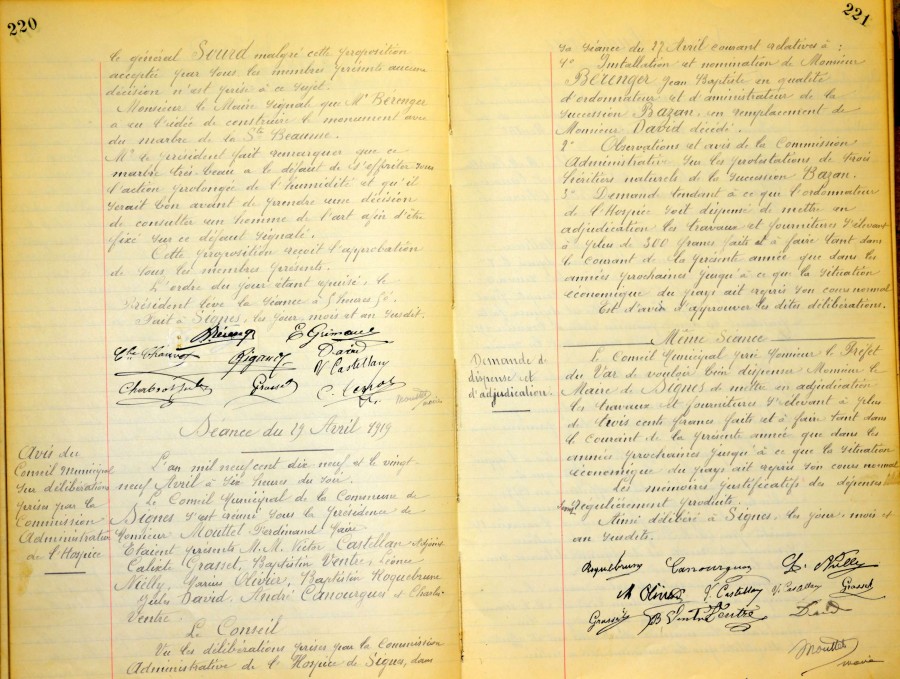 220
le général Sourd malgré cette proposition
acceptée par tous les membres présents aucune
décision n'est prise à ce sujet.
Monsieur le Maire signale que Mr Bérenger
a eu l'idée de construire le monument avec
du marbre de la Ste Beaume.
Mr le président fait remarquer que ce
marbre très beau a le défaut de s'effriter sous
l'action prolongée de l'humidité et qu'il
serait bon avant de prendre une décision
de consulter un homme de l'art afin d'être
fixé sur ce défaut signalé.
Cette proposition reçoit l'approbation
de tous les membres présents.
L'ordre du jour étant épuisé le
Président lève la séance à 5 heures
Fait à Signes, les jour, mois et an susdit.
E. Grimaud
David
V. Castellan
Grasset
Mouttet
maire
Séance du 29 Avril 1919
Avis du
Conseil Municipal
sur délibérations
prises par la
Commission
Administrative
de l'Hospice
L'an mil neuf cent dix neuf et le vingt
neuf Avril à six heures du soir.
Le Conseil Municipal de la Commune de
Signes s'est réuni sous la présidence de
Monsieur Mouttet Ferdinand Maire
Etaient présents M.M. Victor Castellan Adjoint
Calixte Grasset, Baptistin Ventre, Léonce
Neilly, Marius Olivier, Baptistin Roquebrune
Jules David, André Canourgues et Charles
Ventre.
Le Conseil
Vu les délibérations prises par la Commission
Administrative de l'Hospice de Signes, dans
221
sa séance du 27 Avril courant relatives à :
1° Installation et nomination de Monsieur
Bérenger Jean Baptiste en qualité
d'ordonnateur et d'aministrateur de la
succession Bazan, en remplacement de
Monsieur David décédé.
2° Observations et avis de la Commission
Administrative sur les protestations de trois
héritiers naturels de la succession Bazan.
3° Demande tendant à ce que l'ordonnateur
de l'Hospice soit dispensé de mettre en
adjudication les travaux et fournitures s'élevant
à plus de 300 francs faits et à faire tant dans
le courant de la présente année que dans les
années prochaines jusqu'à ce que la situation
économique du pays ait repris son cours normal
Est d'avis d'approuver les dites délibérations.
Même Séance
Demande de
dispense et
d'adjudication.
Le Conseil Municipal prie Monsieur le Préfet
du Var de vouloir bien dispenser Monsieur le
Maire de Signes de mettre en adjudication
les travaux et fournitures s'élevant à plus
de trois cents francs faits et à faire tant dans
le courant de la présente année que dans les
années prochaines jusqu'à ce que la situation
économique du pays ait repris son cours normal
les mémoires justificatifs des dépenses
régulièrement produits.
Ainsi délibéré à Signes, les jour, mois et
an susdits.
Roquebrune Canourgues L. Neilly
M Olivier V. Castellan V. Castellan Grasset
Grasset B. Ventre Ventre David
Mouttet
maire